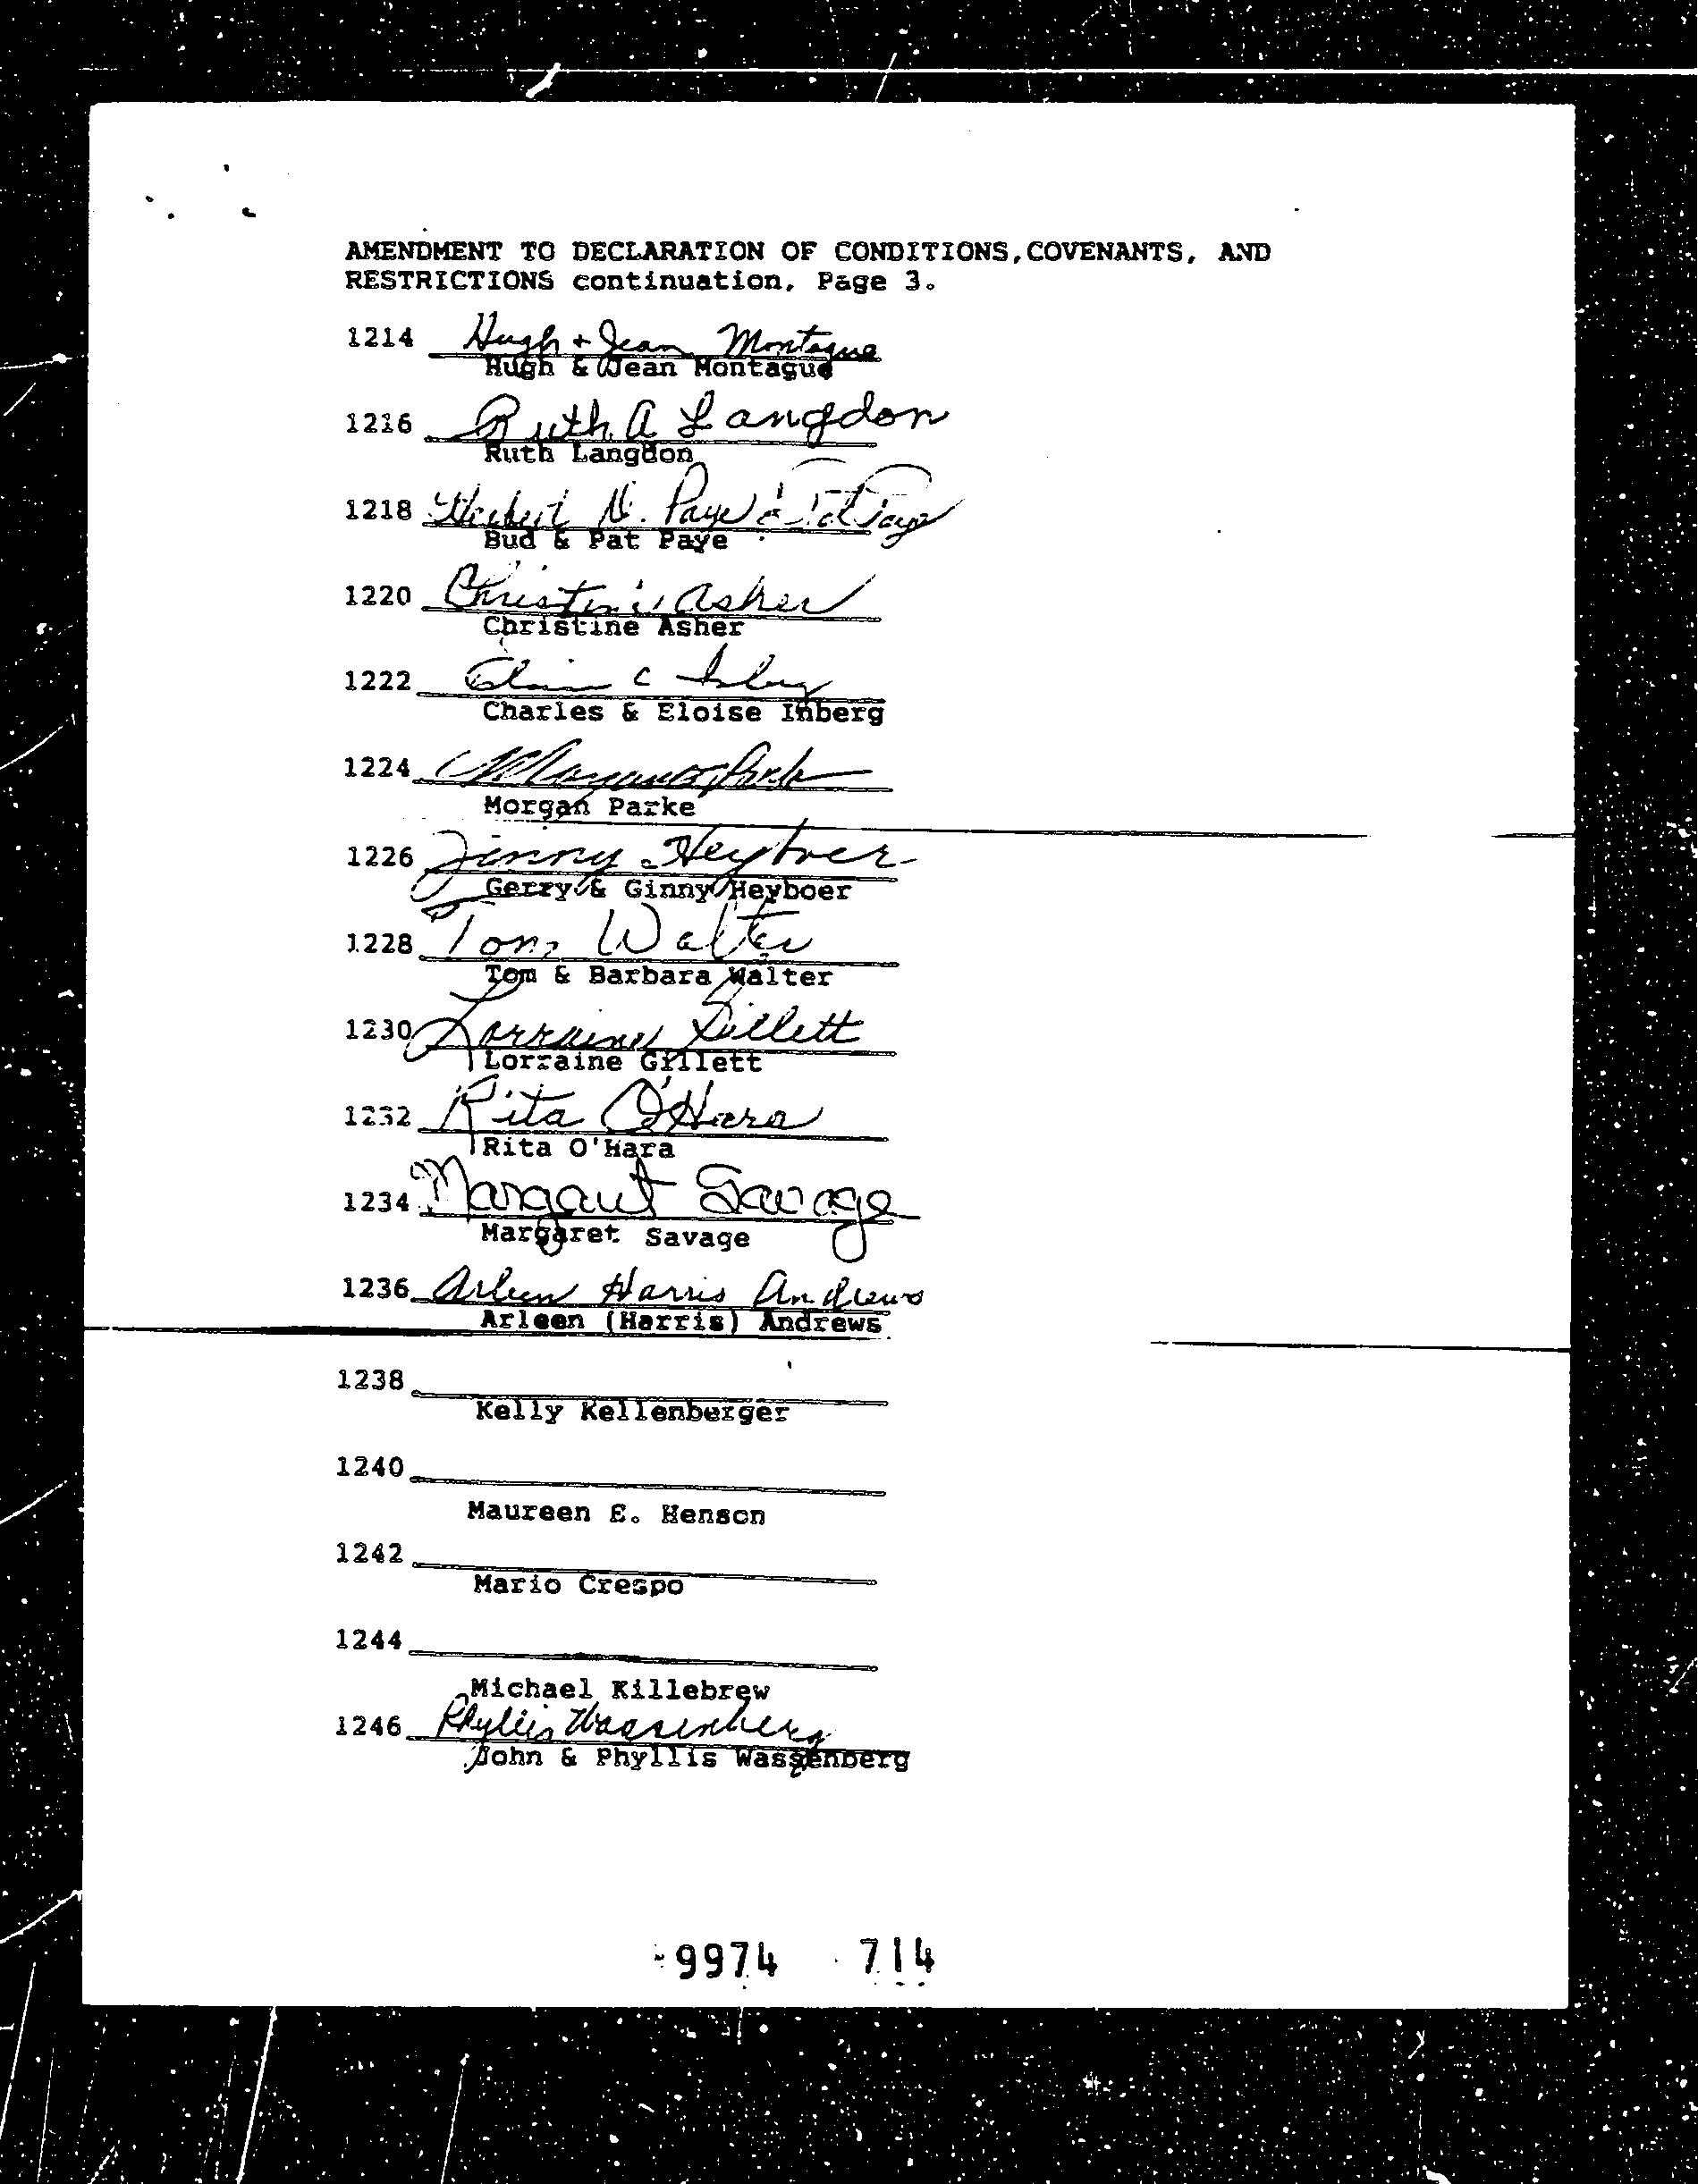 AMENDMENT TO DECLARATION OF CONDITIONS,COVENANTS, AND
RESTRICTIONS continuation, Page 3.
1214 Hugh + Jean Montague
Hugh & Jean Montague
1216 Ruth A Langdon
Ruth Langdon
1218 Herbert N. Paye & Pat Paye
Bud & Pat Paye
1220 Christine Asher
Christine Asher
1222 C
Charles & Eloise Inberg
1224 Morgan Parke
Morgan Parke
1226 Jinny Heyboer
Gerry & Ginny Heyboer
1228 Tom Walter
Tom & Barbara Walter
1230 Lorraine Gillett
Lorraine Gillett
1232 Rita O'Hara
Rita O'Hara
1234 Margaret Savage
Margaret Savage
1236 Arleen Harris Andrews
Arleen (Harris) Andrews
1238
Kelly Kellenberger
1240
Maureen E. Henson
1242
Mario Crespo
1244
Michael Killebrew
1246 Phyllis Wassenberg
John & Phyllis Wassenberg
9974 714